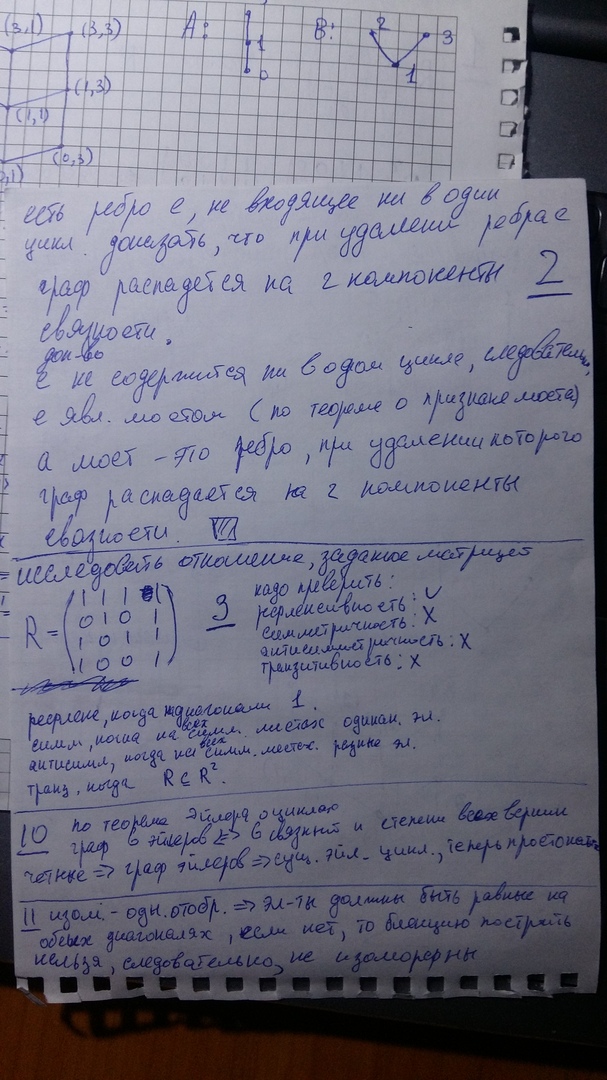 (3,1) (3,3) A: 1 0 B: 2 3 1
(1,1) (1,3)
(0,3)
есть ребро е, не входящее ни в один
цикл. доказать, что при удалении ребра е
граф распадется на 2 компоненты 2
связности.
док-во
е не содержится ни в одом цикле, следовательно,
е явл. мостом (по теореме о признаке моста)
а мост - это ребро, при удалении которого
граф распадается на 2 компоненты
связности.
исследовать отношение, заданое матрицей
R = 3
1 1 1 1
0 1 0 1
1 0 1 1
1 0 0 1
надо проверить:
рефлексивность: ✓
симметричность: X
антисимметричность: X
транзитивность: X
рефлекс, когда на диагонали 1.
симм, когда на всех симм. местах одинак. эл.
антисимм, когда на всех симм. местах. разные эл.
транз, когда R ⊆ R².
10 по теореме Эйлера о циклах
граф G эйлеров <=> G связный и степени всех вершин
четные => граф эйлеров => сущ. эйл. цикл., теперь просто
11 изом. - одн. отобр. => эл-ты должны быть равные на
обеих диагоналях, если нет, то биекцию построить
нельзя, следовательно, не изоморфны